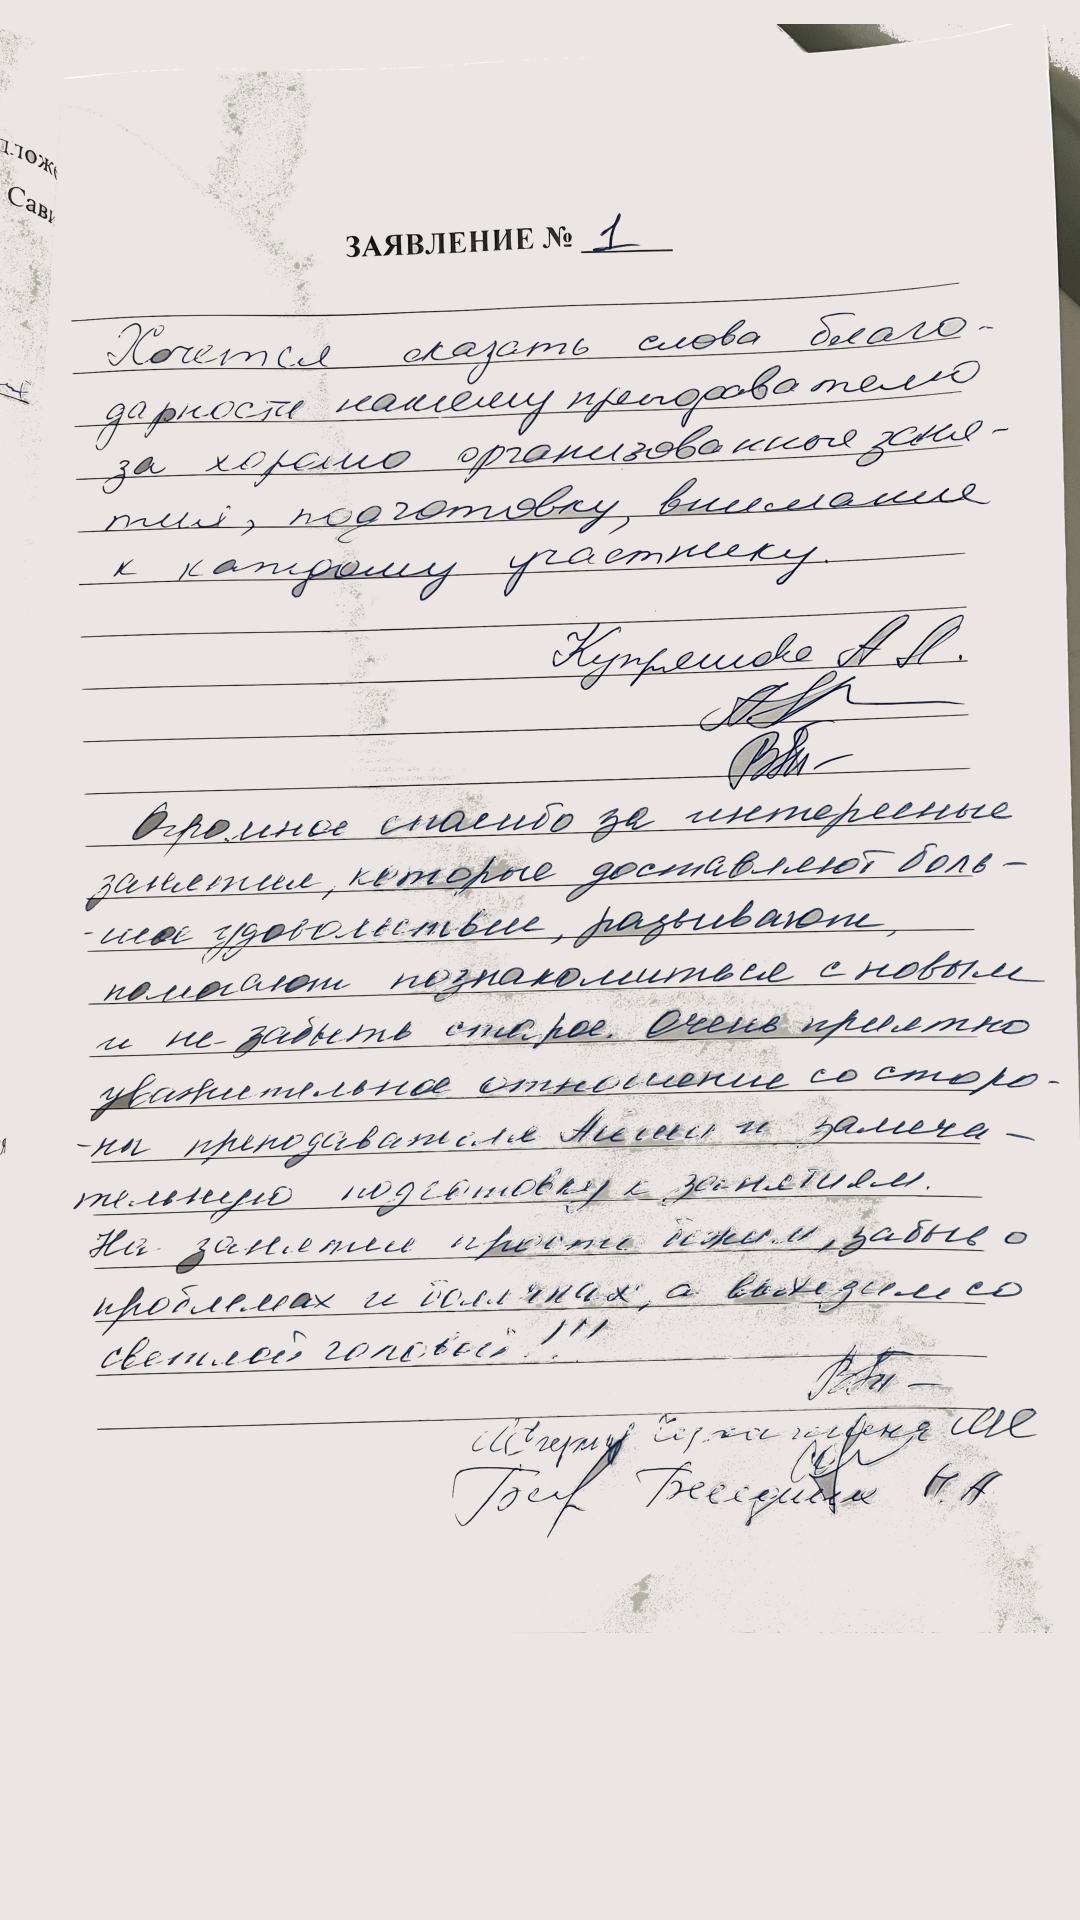 длож
Сави
ЗАЯВЛЕНИЕ № 1
Хочется сказать слова благо-
дарности нашему преподавателю
за хорошо организованные заня-
тия, подготовку, внимание
к каждому участнику.
Купряшова А Л.
Огромное спасибо за интересные
занятия, которые доставляют боль-
-шое удовольствие, развивают,
помогают познакомиться с новым
и не забыть старое. Очень приятно
уважительное отношение со сторо-
-ны преподавателя и замеча-
тельную подготовку к занятиям.
На занятии просто забыв о
проблемах и болячках, а выходим со
светлой головой!!!
Н. А